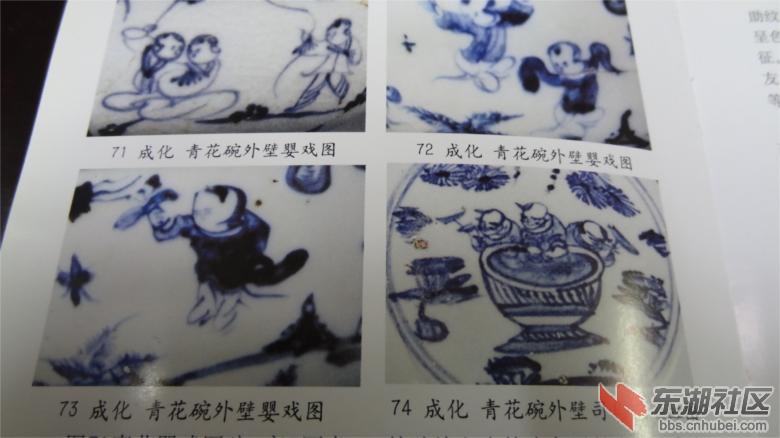 助纹
呈色
征。
友
等
71 成化 青花碗外壁婴戏图
72 成化 青花碗外壁婴戏图
73 成化 青花碗外壁婴戏图
74 成化 青花碗外壁司
东湖社区
bbs.cnhubei.com